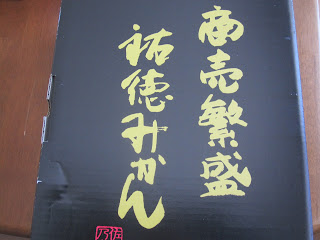 商売繁盛
祐徳みかん